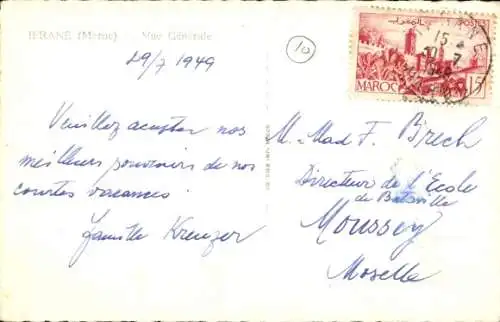 IFRANE (Maroc) — Vue Générale
29/7 1949
10
POSTES
MAROC 15F
Veuillez accepter nos
meilleurs souvenirs de nos
courtes vacances.
famille Kreuzer
M. Mad F. Brech
Directeur de l'Ecole
de
Moussey
Moselle